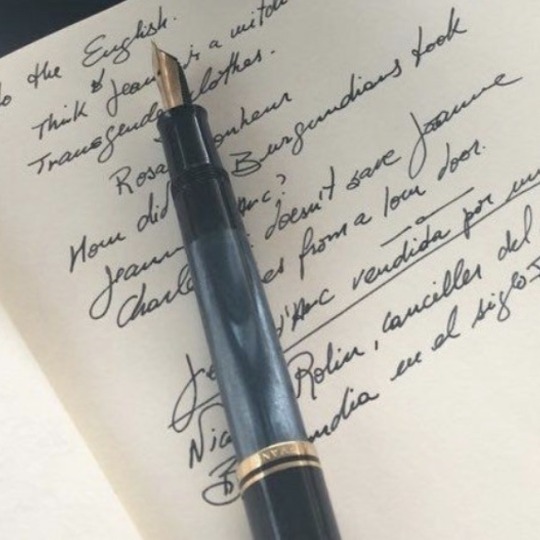 to the English.
Think Jean is a witch
Transgender clothes.
Rosa onheur
How did Burgundians took
Jeanne Arc?
Charles doesn't save Joanne
es from a low door.
Je d'Arc vendida por un
Nic Rolin, canciller del
B undia en el siglo